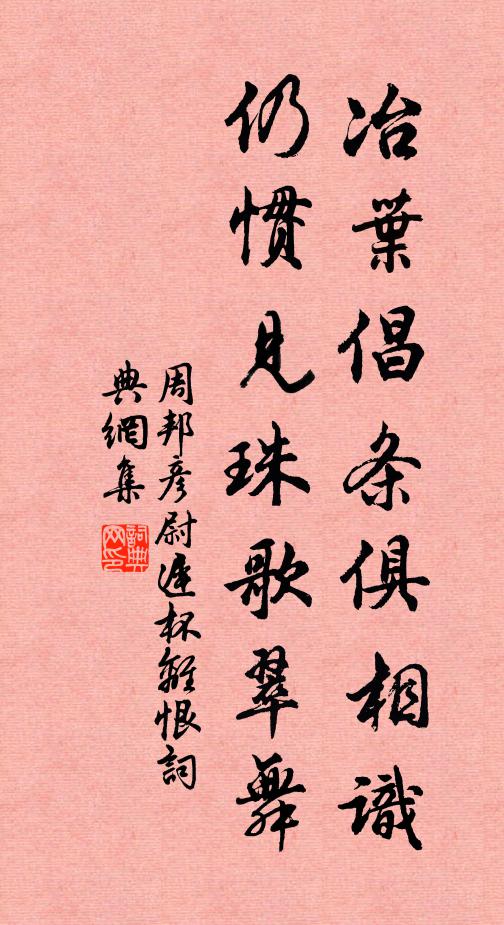 冶葉倡条俱相識
仍慣見珠歌翠舞
周邦彦尉遲杯離恨詞
典網集
詞典網印